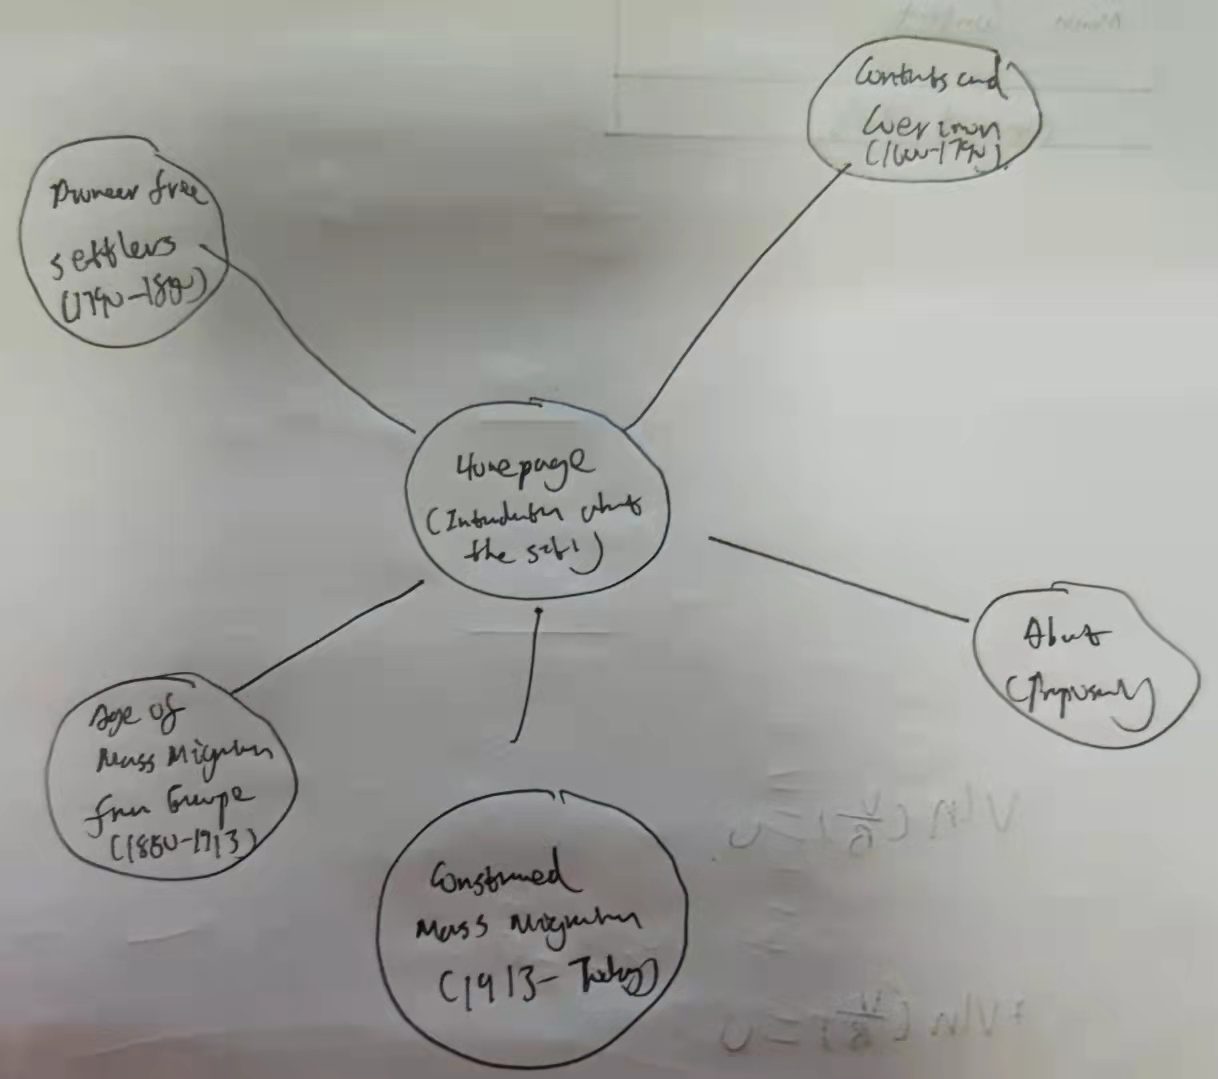 Contracts and
(1600-1790)
Pioneer free
settlers
(1790-1850)
Homepage
(Introduction about
the site)
About
(Proposal)
Age of
Mass Migration
from Europe
(1850-1913)
Constrained
Mass Migration
(1913-Today)